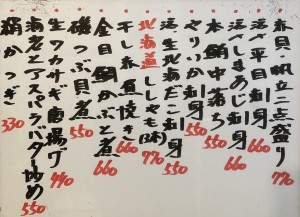 赤貝・帆立二点盛り 770
活〆平目刺身 660
活〆しまあじ刺身 660
本鮪中落ち 550
やりいか刺身 550
活〆生北海だこ刺身 550
北海道ししゃも(3本) 770
干し赤魚焼き 660
金目鯛かぶと煮 660
磯つぶ貝煮 550
生ワカサギ唐揚げ 440
海老とアスパラバター炒め 550
絹かつぎ 330